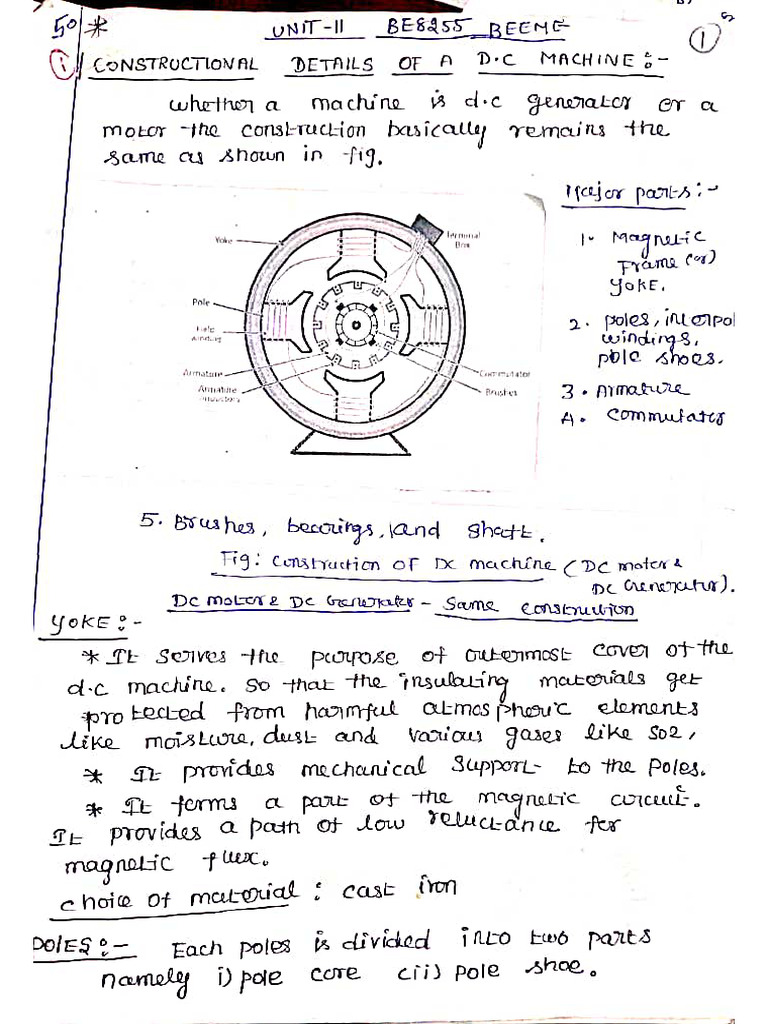 50 *
UNIT-II BE8255 BEEME
1
i) CONSTRUCTIONAL DETAILS OF A D.C MACHINE:-
Whether a machine is d.c generator or a
motor the construction basically remains the
same as shown in fig.
Major parts:-
1. Magnetic
Frame (or)
Yoke.
2. poles, interpol
windings,
pole shoes.
3. Armature
4. Commutator
Yoke
Terminal
Box
Pole
Field
winding
Armature
Armature
conductors
Commutator
Brushes
5. Brushes, bearings, and shaft.
Fig: construction of DC machine (DC motor &
DC Generator).
DC motor & DC Generator - Same construction
YOKE:-
* It serves the purpose of outermost cover of the
d.c machine. So that the insulating materials get
protected from harmful atmospheric elements
like moisture, dust and various gases like SO2,
* It provides mechanical support to the poles.
* It forms a part of the magnetic circuit.
It provides a path of low reluctance for
magnetic flux.
choice of material: cast iron
POLES:- Each poles is divided into two parts
namely i) pole core (ii) pole shoe.